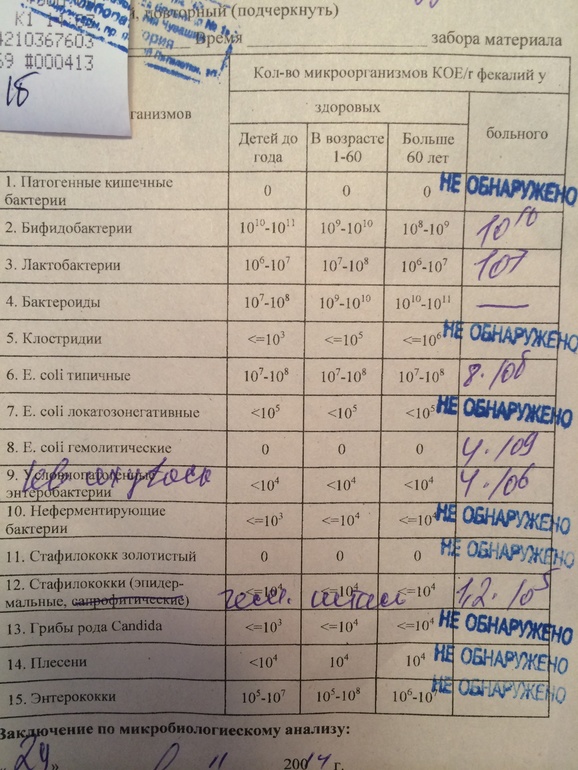 К1
4210367603
69 #000413
18
повторный (подчеркнуть)
Время забора материала
ганизмов
Кол-во микроорганизмов КОЕ/г фекалий у
здоровых
больного
Детей до года
В возрасте 1-60
Больше 60 лет
1. Патогенные кишечные бактерии 0 0 0 НЕ ОБНАРУЖЕНО
2. Бифидобактерии 10¹⁰-10¹¹ 10⁹-10¹⁰ 10⁸-10⁹ 10¹⁰
3. Лактобактерии 10⁶-10⁷ 10⁷-10⁸ 10⁶-10⁷ 10⁷
4. Бактероиды 10⁷-10⁸ 10⁹-10¹⁰ 10¹⁰-10¹¹ —
5. Клостридии <=10³ <=10⁵ <=10⁶ НЕ ОБНАРУЖЕНО
6. E. coli типичные 10⁷-10⁸ 10⁷-10⁸ 10⁷-10⁸ 8·10⁶
7. E. coli локатозонегативные <10⁵ <10⁵ <10⁵ НЕ ОБНАРУЖЕНО
8. E. coli гемолитические 0 0 0 4·10⁹
9. Условнопатогенные энтеробактерии <10⁴ <10⁴ <10⁴ 4·10⁶
10. Неферментирующие бактерии <=10³ <=10⁴ <=10⁴ НЕ ОБНАРУЖЕНО
11. Стафилококк золотистый 0 0 0 НЕ ОБНАРУЖЕНО
12. Стафилококки (эпидермальные, сапрофитические) <=10⁴ <=10⁴ <=10⁴ 1,2·10⁵
13. Грибы рода Candida <=10³ <=10⁴ <=10⁴ НЕ ОБНАРУЖЕНО
14. Плесени <10⁴ 10⁴ 10⁴ НЕ ОБНАРУЖЕНО
15. Энтерококки 10⁵-10⁷ 10⁵-10⁸ 10⁶-10⁷ НЕ ОБНАРУЖЕНО
Заключение по микробиологиескому анализу:
« 24 » 2014 г.